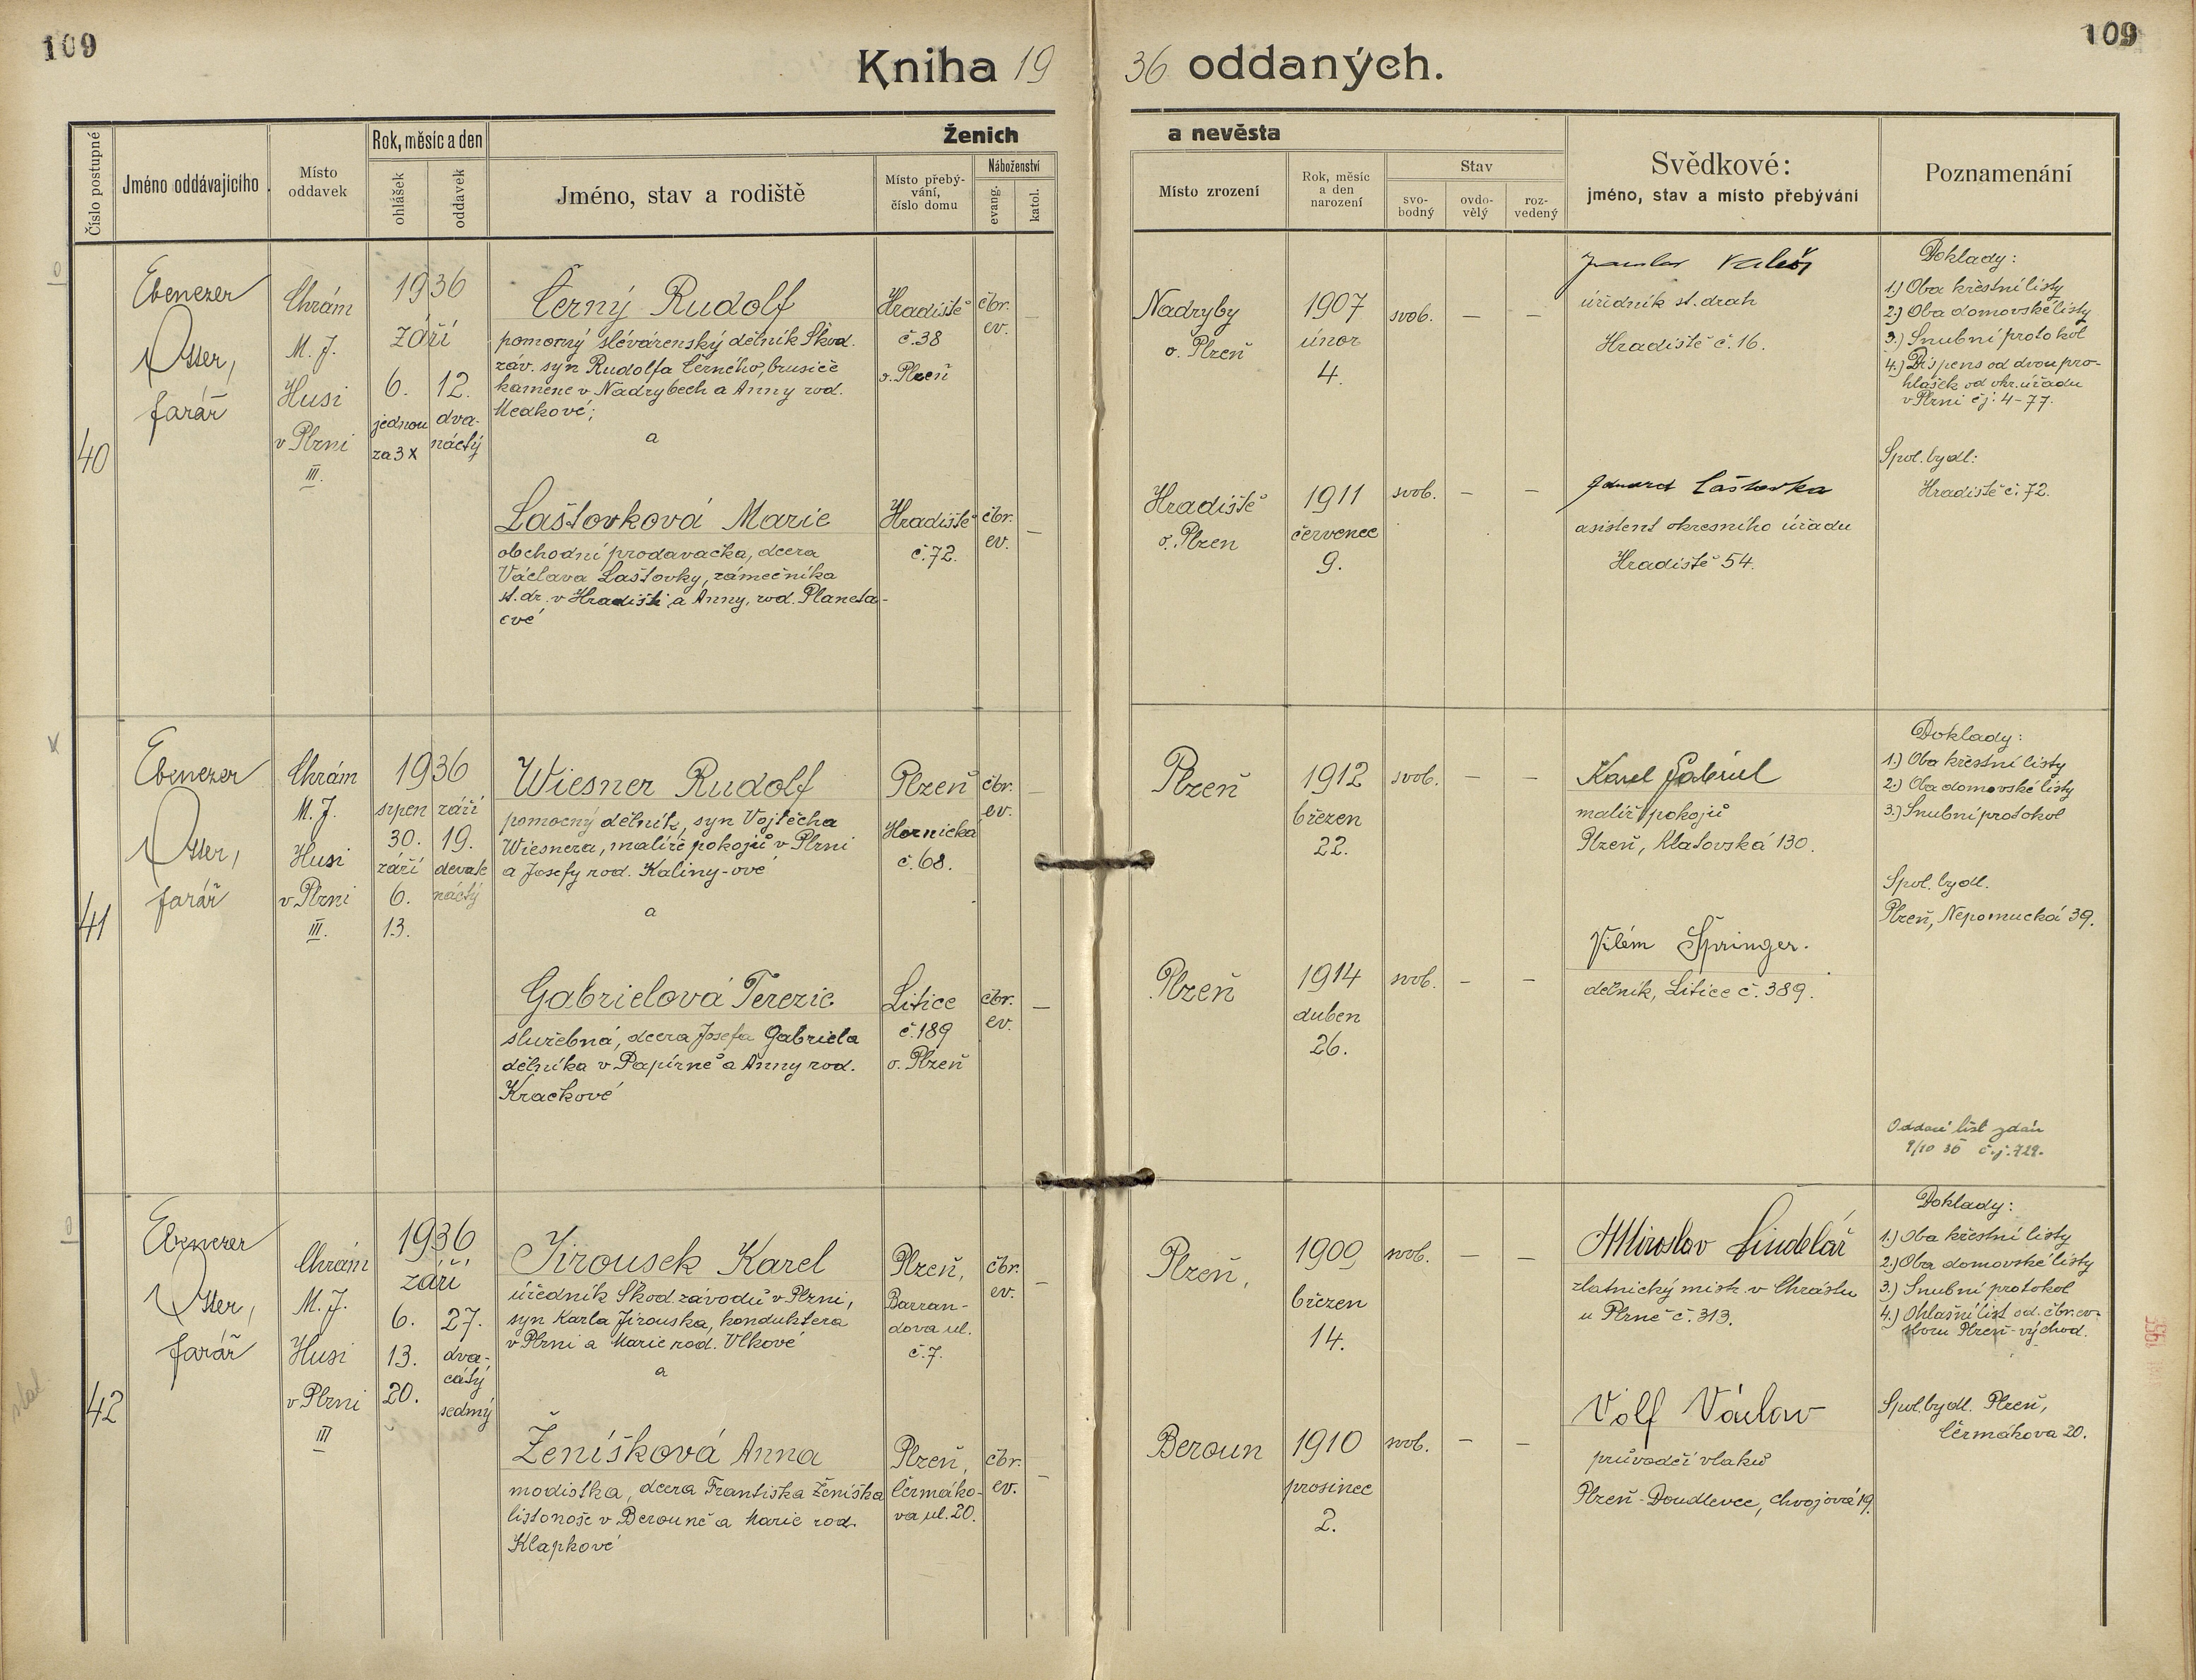 109
109
Kniha 1936 oddaných.
Číslo postupné
Jméno oddávajícího
Místo oddavek
Rok, měsíc a den
ohlášek
oddavek
Ženich
a nevěsta
Jméno, stav a rodiště
Místo přebý-
vání,
číslo domu
Náboženství
evang.
katol.
Místo zrození
Rok, měsíc
a den
narození
Stav
svo-
bodný
ovdo-
vělý
roz-
vedený
Svědkové:
jméno, stav a místo přebývání
Poznamenání
40
Ebenezer
Otter,
farář
Chrám
M. J.
Husi
v Plzni
III.
1936
září
6.
jednou
za 3 x
12.
dva-
náctý
Černý Rudolf
pomocný slévárenský dělník Škod.
záv. syn Rudolfa Černého, brusiče
kamene v Nadrybech a Anny rod.
a
Hradiště
č. 38
o. Plzeň
čbr.
ev.
—
Nadryby
o. Plzeň
1907
únor
4.
svob.
—
—
úředník st. drah
Hradiště č. 16.
Doklady:
1.) Oba křestní listy
2.) Oba domovské listy
3.) Snubní protokol
4.) Dispens od dvou pro-
hlášek od okr. úřadu
v Plzni čj. 4-77.
Laštovková Marie
obchodní prodavačka, dcera
Václava Laštovky, zámečníka
st. dr. v Hradišti a Anny, rod. Planeta-
ové
Hradiště
č. 72.
čbr.
ev.
—
Hradiště
o. Plzeň
1911
červenec
9.
svob.
—
—
Eduard Laštovka
asistent okresního úřadu
Hradiště 54.
Spol. bydl:
Hradiště č. 72.
41
Ebenezer
Otter,
farář
Chrám
M. J.
Husi
v Plzni
III.
1936
srpen
30.
září
6.
13.
září
19.
devate
náctý
Wiesner Rudolf
pomocný dělník, syn Vojtěcha
Wiesnera, malíře pokojů v Plzni
a Josefy rod. Kaliny-ové
a
Plzeň
Hornická
č. 68.
čbr.
ev.
—
Plzeň
1912
březen
22.
svob.
—
—
Karel Gabriel
malíř pokojů
Plzeň, Klatovská 130.
Doklady:
1.) Oba křestní listy
2.) Oba domovské listy
3.) Snubní protokol
Spol. bydl.
Plzeň, Nepomucká 39.
Gabrielová Terezie
služebná, dcera Josefa Gabriela
dělníka v Papírně a Anny rod.
Kračkové
Litice
č. 189
o. Plzeň
čbr.
ev.
—
Plzeň
1914
duben
26.
svob.
—
—
Vilém Špringer.
dělník, Litice č. 389.
Oddací list vydán
9/10 36 č.j. 729.
42
Ebenezer
Otter,
farář
Chrám
M. J.
Husi
v Plzni
III
1936
září
6.
13.
20.
27.
dva-
cátý
sedmý
Jirousek Karel
úředník Škod. závodů v Plzni,
syn Karla Jirouska, konduktera
v Plzni a Marie rod. Vlkové
a
Plzeň,
Barran-
dova ul.
č. 7.
čbr.
ev.
—
Plzeň,
1909
březen
14.
svob.
—
—
Miroslav Šindelář
zlatnický mistr v Chrástu
u Plzně č. 313.
Doklady:
1.) Oba křestní listy
2.) Oba domovské listy
3.) Snubní protokol
4.) Ohlašní list od. čbr. ev.
sboru Plzeň-východ.
Ženíšková Anna
modistka, dcera Františka Ženíška
listonoše v Berouně a Marie rod.
Klapkové
Plzeň,
Čermáko-
va ul. 20.
čbr.
ev.
—
Beroun
1910
prosinec
2.
svob.
—
—
Volf Václav
průvodčí vlaků
Plzeň-Doudlevce, Chvojová 19.
Spol. bydl. Plzeň,
Čermákova 20.